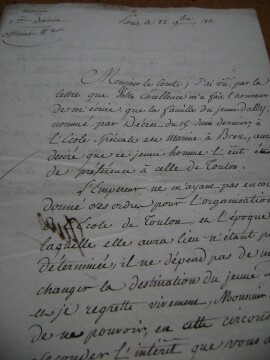 Paris le 22 9bre 181
Monsieur le Comte, J'ai vu, par la
lettre que Votre Excellence m'a fait l'honneur
de m'écrire, que la famille du jeune
nommé par Décret du 15 Juin dernier, à
l'Ecole Spéciale de Marine à Brest,
désiré que ce jeune homme l'eut été
de préférence à celle de Toulon.
L'Empereur ne m'ayant pas encore
donné ses ordres pour l'organisation
Ecole de Toulon et l'époque
laquelle elle aura lieu n'étant pas
déterminée, il ne dépend pas de m
changer la destination du jeune
et je regrette vivement, Monsieur
de ne pouvoir, en cette circons
seconder l'intérêt que vous